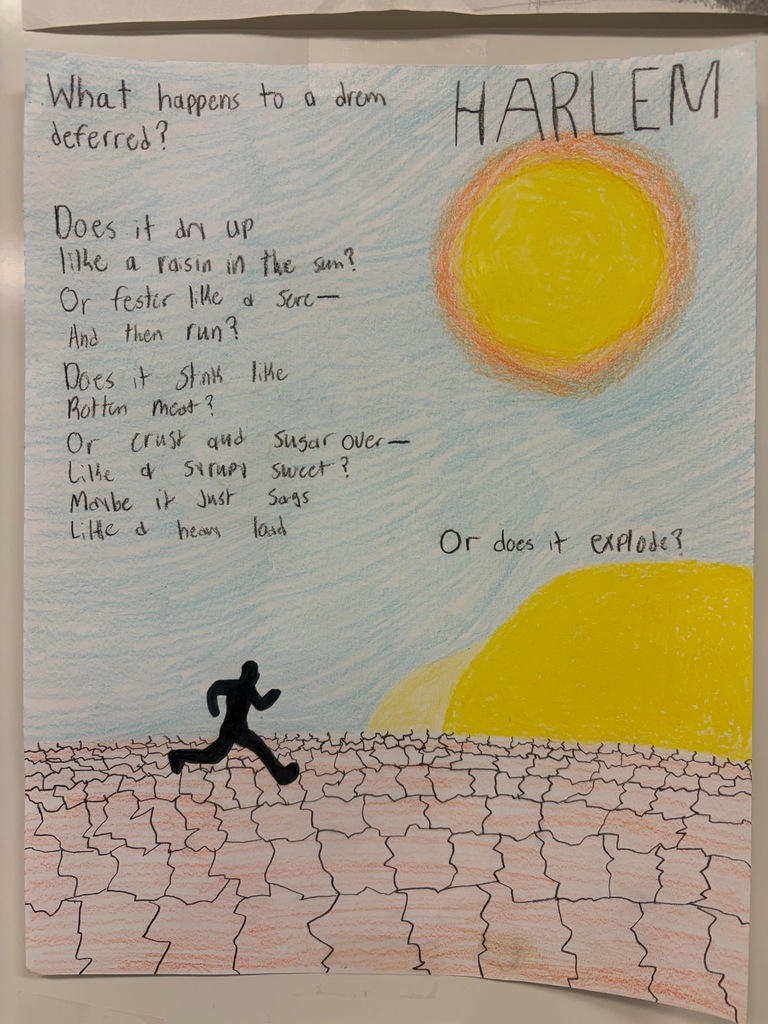 HARLEM
What happens to a drem
deferred?
Does it dry up
like a raisin in the sun?
Or fester like a sore—
And then run?
Does it stink like
Rotten meat?
Or crust and sugar over—
Like a syrupy sweet?
Maybe it Just sags
Like a heavy load
Or does it explode?